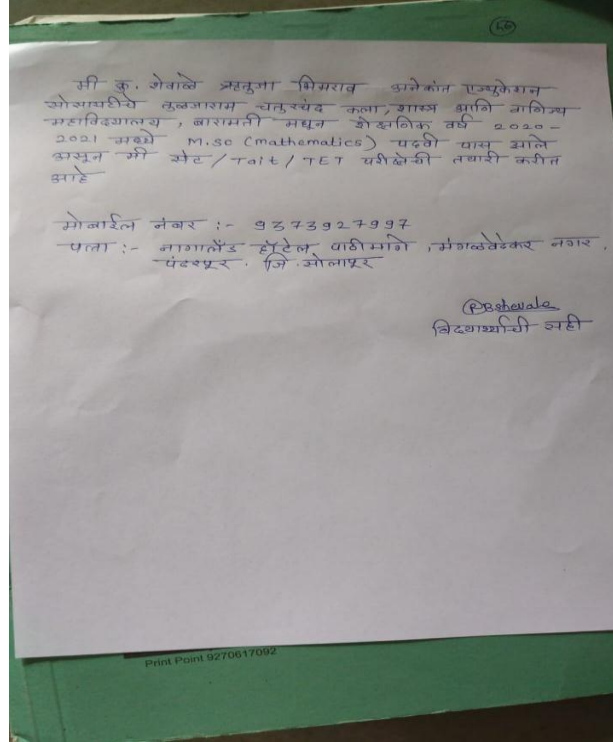 मी कु. शेवाळे ऋतुजा भिमराव अनेकांत एज्युकेशन
सोसायटीचे तुळजाराम चतुरचंद कला, शास्त्र आणि वाणिज्य
महाविद्यालय, बारामती मधून शैक्षणिक वर्ष 2020-
2021 मध्ये M.sc (mathematics) पदवी पास झाले
असून मी सेट / Tait / TET परीक्षेची तयारी करीत
आहे
मोबाईल नंबर :- 9373927997
पत्ता :- नागालँड हॉटेल पाठीमागे, मंगळवेढेकर नगर.
पंढरपूर. जि. सोलापूर
RBshevale
विद्यार्थ्याची सही
Print Point 9270617092